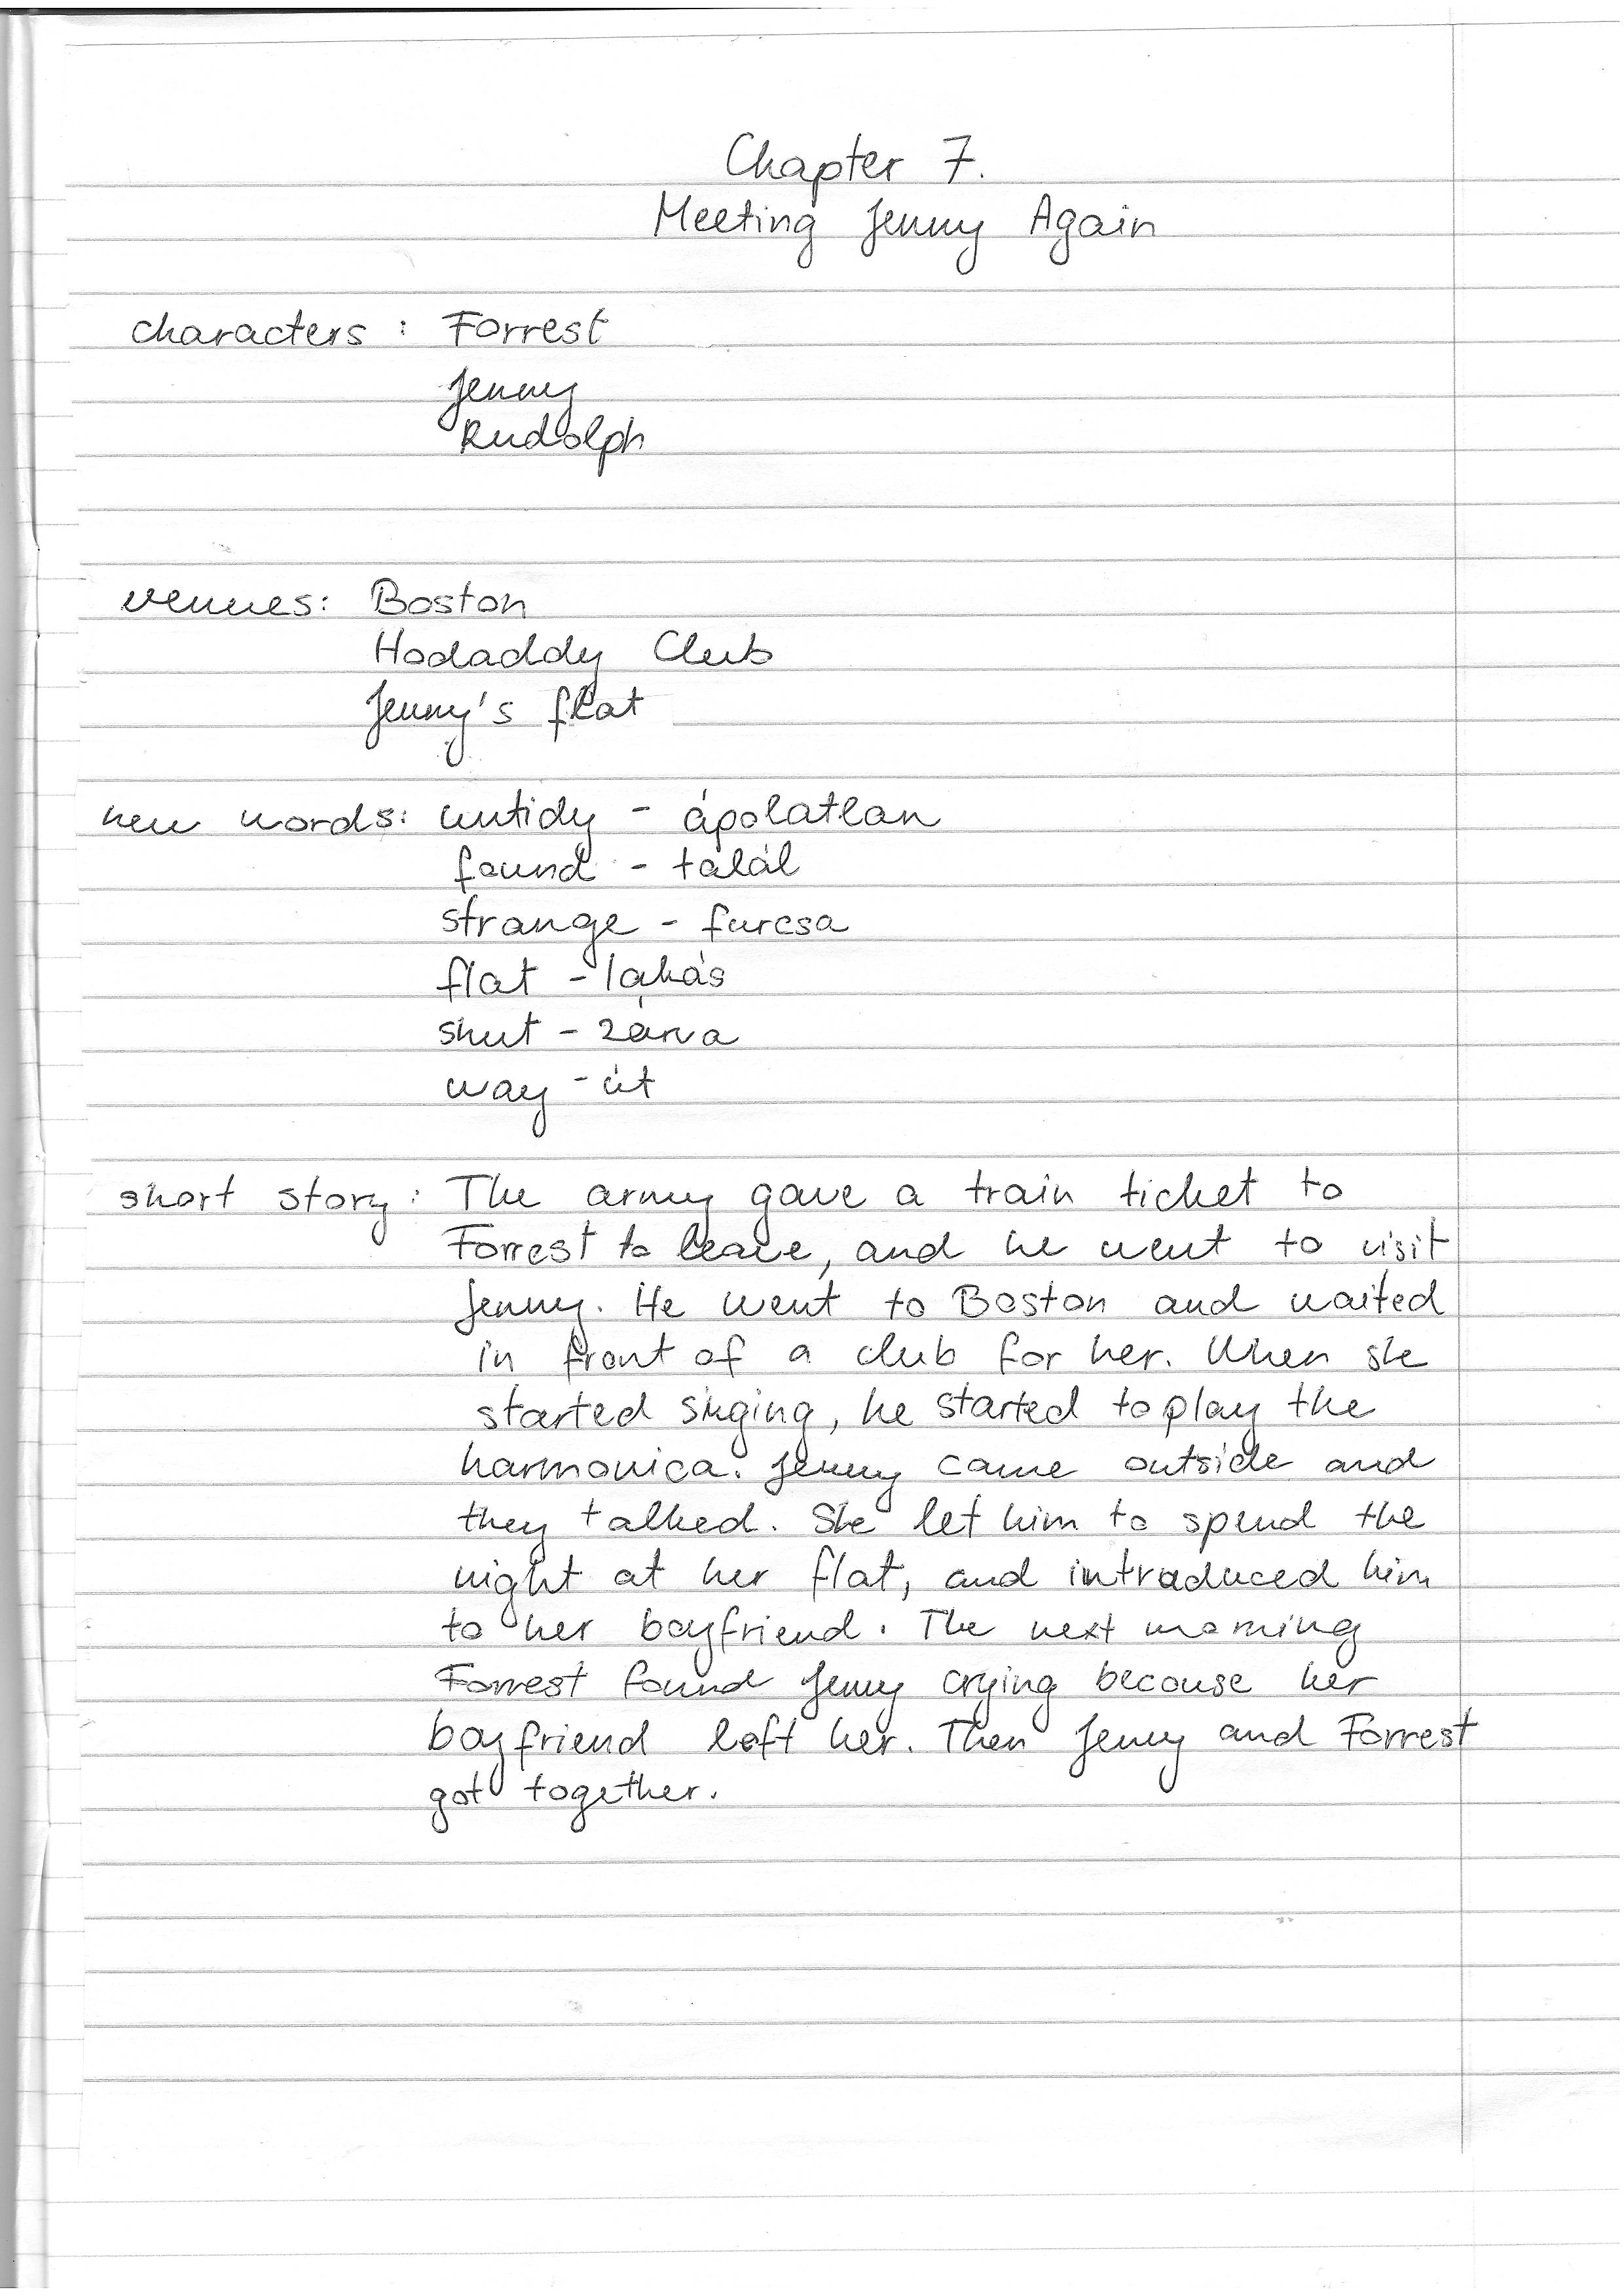 Chapter 7.
Meeting Jenny Again
characters : Forrest
Jenny
Rudolph
venues: Boston
Hodaddy Club
Jenny's flat
new words: untidy - ápolatlan
found - talál
strange - furcsa
flat - lakás
shut - zárva
way - út
short story: The army gave a train ticket to
Forrest to leave, and he went to visit
Jenny. He went to Boston and waited
in front of a club for her. When she
started singing, he started to play the
harmonica. Jenny came outside and
they talked. She let him to spend the
night at her flat, and introduced him
to her boyfriend. The next morning
Forrest found Jenny crying becouse her
boyfriend left her. Then Jenny and Forrest
got together.